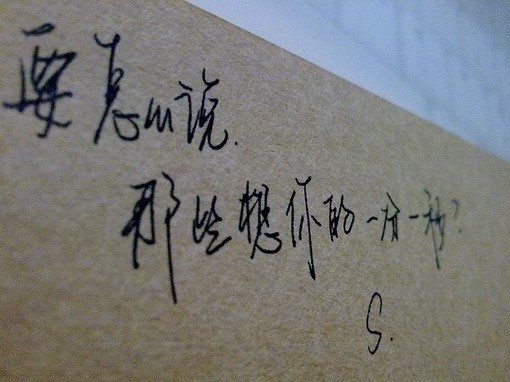 要怎么说.
那些想你的一分一秒?
S.